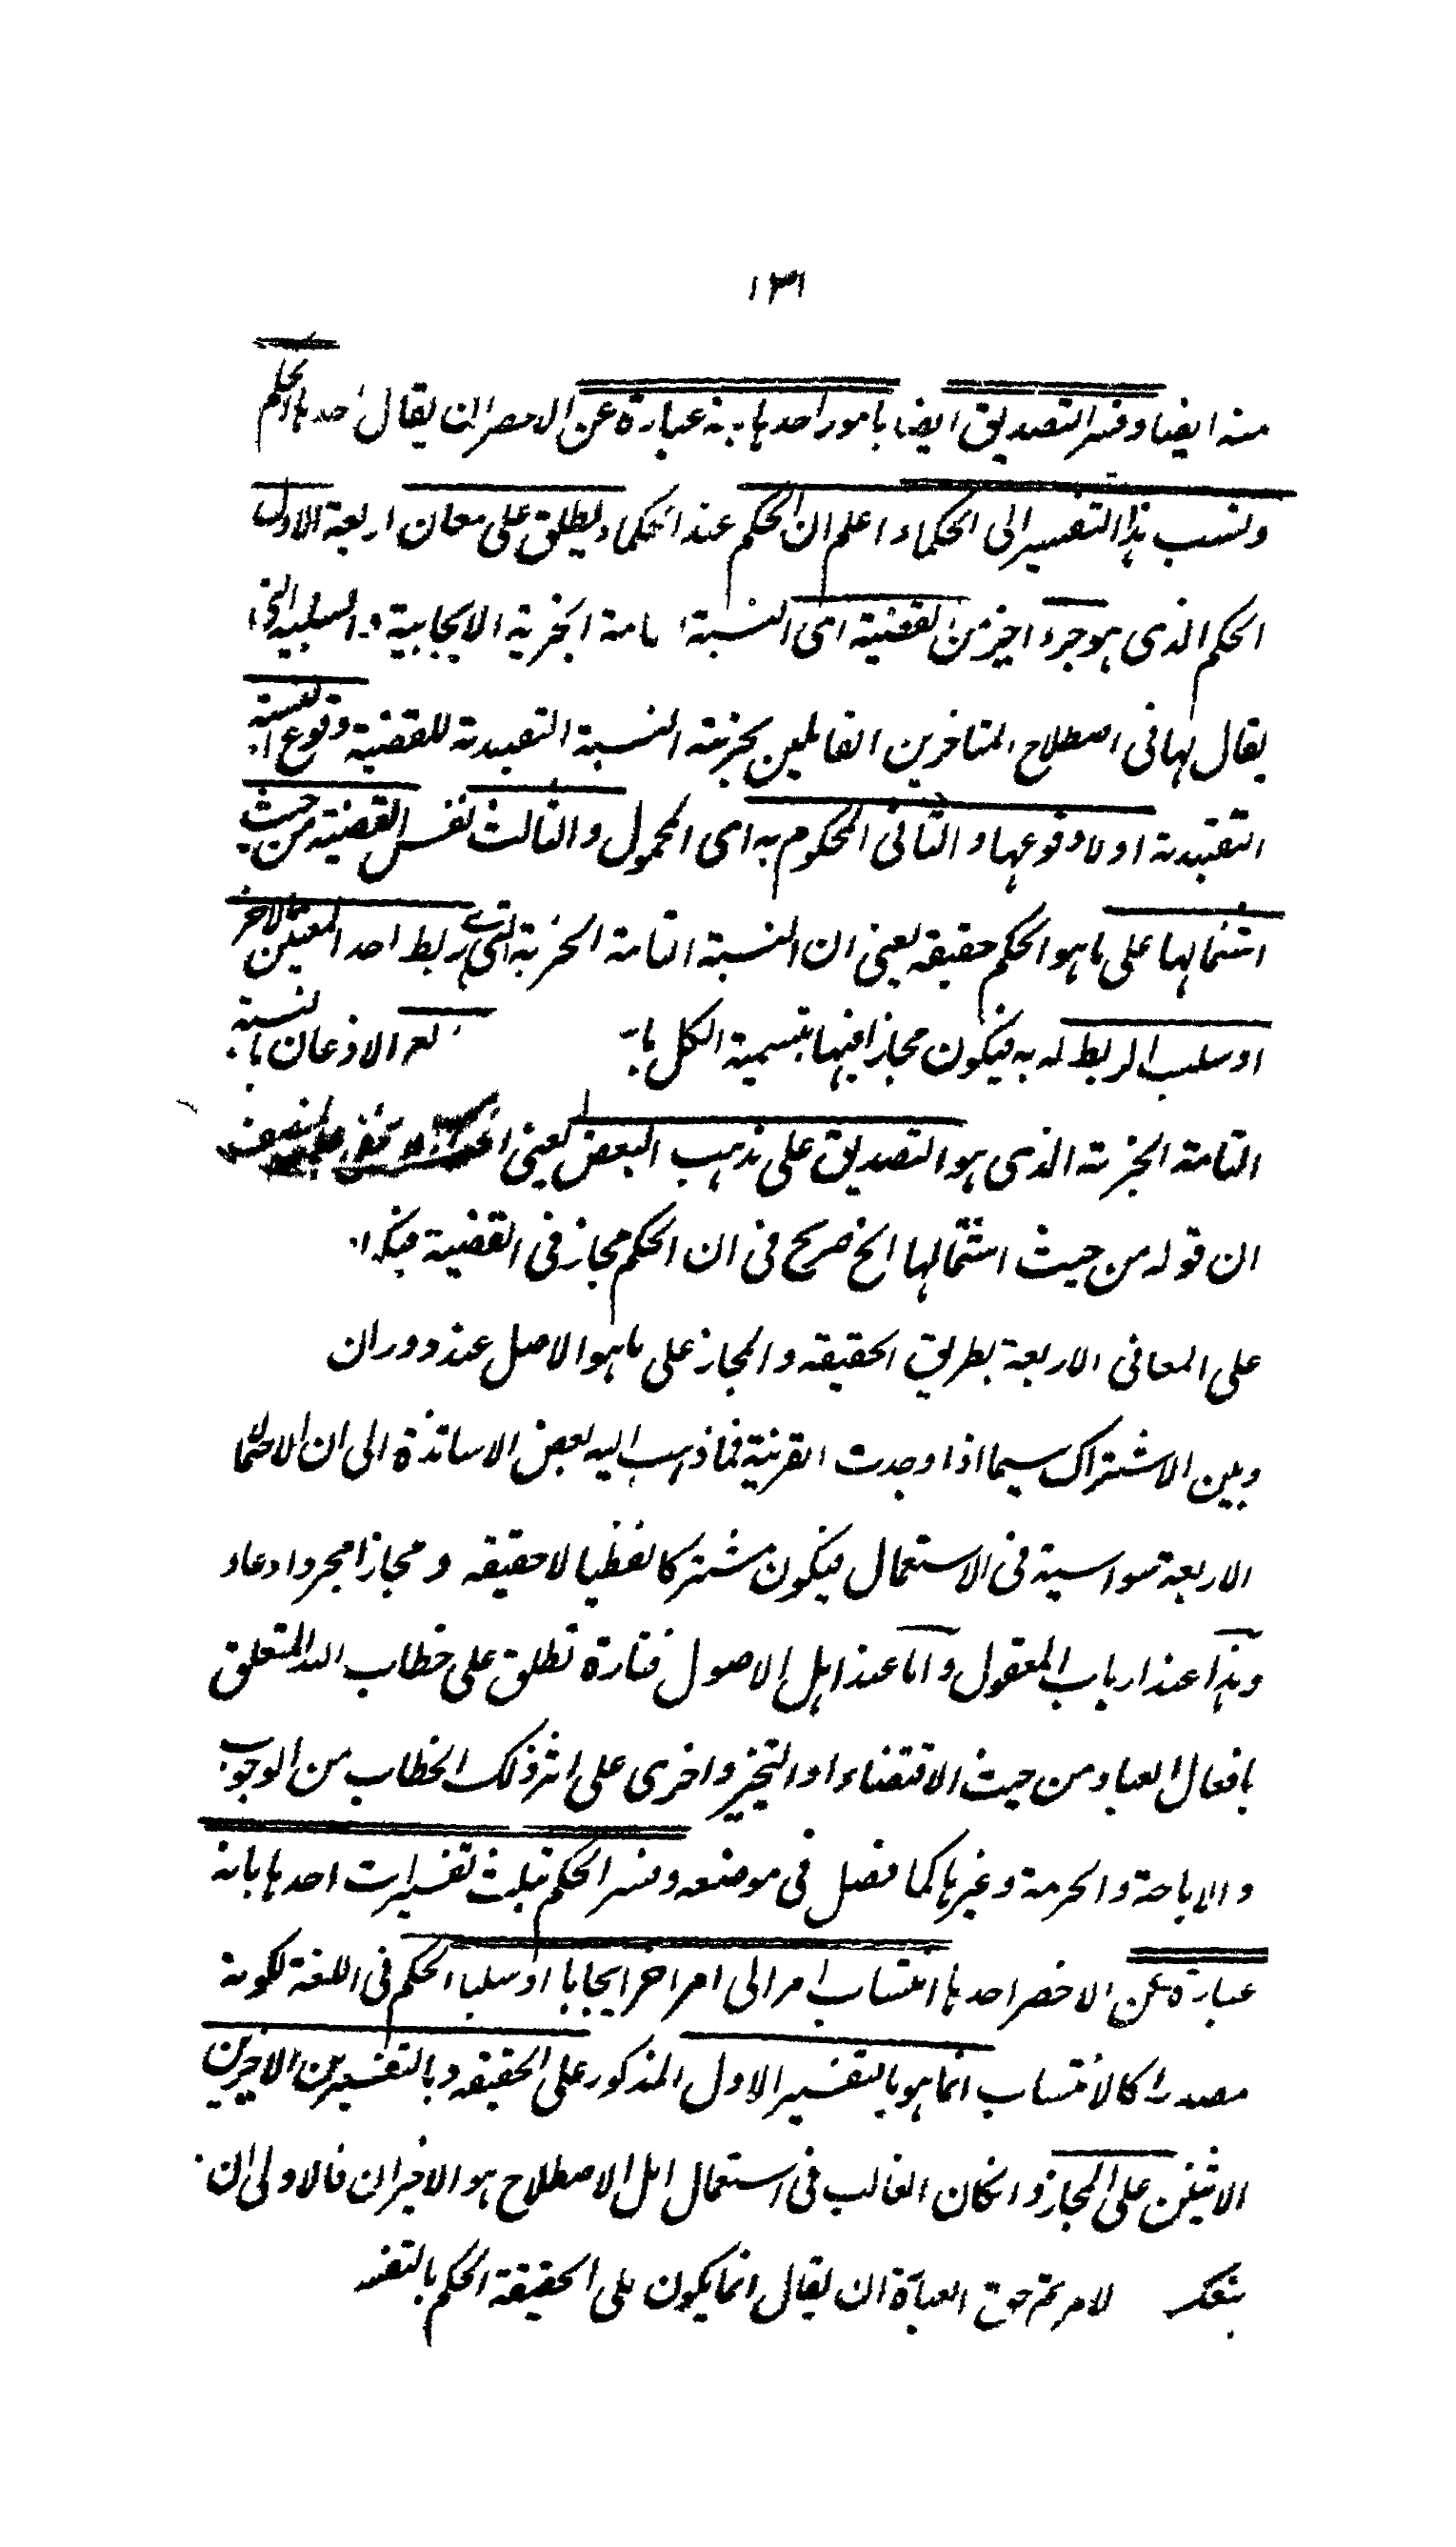 ١٣١
منه ايضا وفسر التصديق ايضا بامور احدها بانه عبارة عن الاخصر ان يقال احدها الحكم
ونسب هذا التفسير الى الحكماء اعلم ان الحكم عند الحكماء يطلق على معان اربعة الاول
الحكم الذى هو جزء اخير من القضية اى النسبة التامة الخبرية الايجابية والسلبية التى
يقال لها فى اصطلاح المتاخرين القائلين بجزئية النسبة التقييدية للقضية وقوع النسبة
التقييدية اولا وقوعها والثانى المحكوم به اى المحمول والثالث نفس القضية من حيث
اشتمالها على ما هو الحكم حقيقة يعنى ان النسبة التامة الخبرية التى بها يربط احد المعنيين الاخر
او سلب الربط له به فيكون مجازا فيها بتسمية الكل با الاذعان بالنسبة
التامة الخبرية الذى هو التصديق على مذهب البعض يعنى
ان قوله من حيث اشتمالها الخ صريح فى ان الحكم مجاز فى القضية فيكو
على المعانى الاربعة بطريق الحقيقة والمجاز على ما هو الاصل عند دوران
وبين الاشتراك سيما اذا وجدت القرينة فما ذهب اليه بعض الاساتذة الى ان الاحتمالا
الاربعة سواسية فى الاستعمال فيكون مشتركا لفظيا لا حقيقة ومجازا مجرد ادعاء
وهذا عند ارباب المعقول واما عند اهل الاصول فتارة تطلق على خطاب الله المتعلق
بافعال العباد من حيث الاقتضاء او التخيير واخرى على اثر ذلك الخطاب من الوجوب
والاباحة والحرمة وغيرها كما فصل فى موضعه وفسر الحكم بثلث تفسيرات احدها بانه
عبارة عن الاخصر احدها انتساب امر الى امر اخر ايجابا او سلبا الحكم فى اللغة لكونه
مصدرا كالانتساب انما هو بالتفسير الاول المذكور على الحقيقة وبالتفسيرين الاخيرين
الاثنين على المجاز وان كان الغالب فى استعمال اهل الاصطلاح هو الاخيران فالاولى ان
ينعكس الامر ثم حق العبارة ان يقال انما يكون على الحقيقة الحكم بالتفسـ